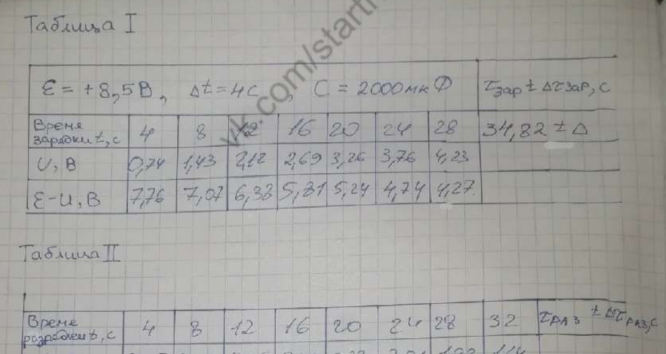 Таблица I
ε = +8,5В, Δt = 4с, С = 2000мкФ τзар ± Δτзар, с
Время зарядки t, с 4 8 12 16 20 24 28 34,82 ± Δ
U, В 0,74 1,43 2,12 2,69 3,26 3,76 4,23
ε-U, В 7,76 7,07 6,38 5,81 5,24 4,74 4,27
Таблица II
Время разрядки t, с 4 8 12 16 20 24 28 32 τраз ± Δτраз, с
vk.com/start